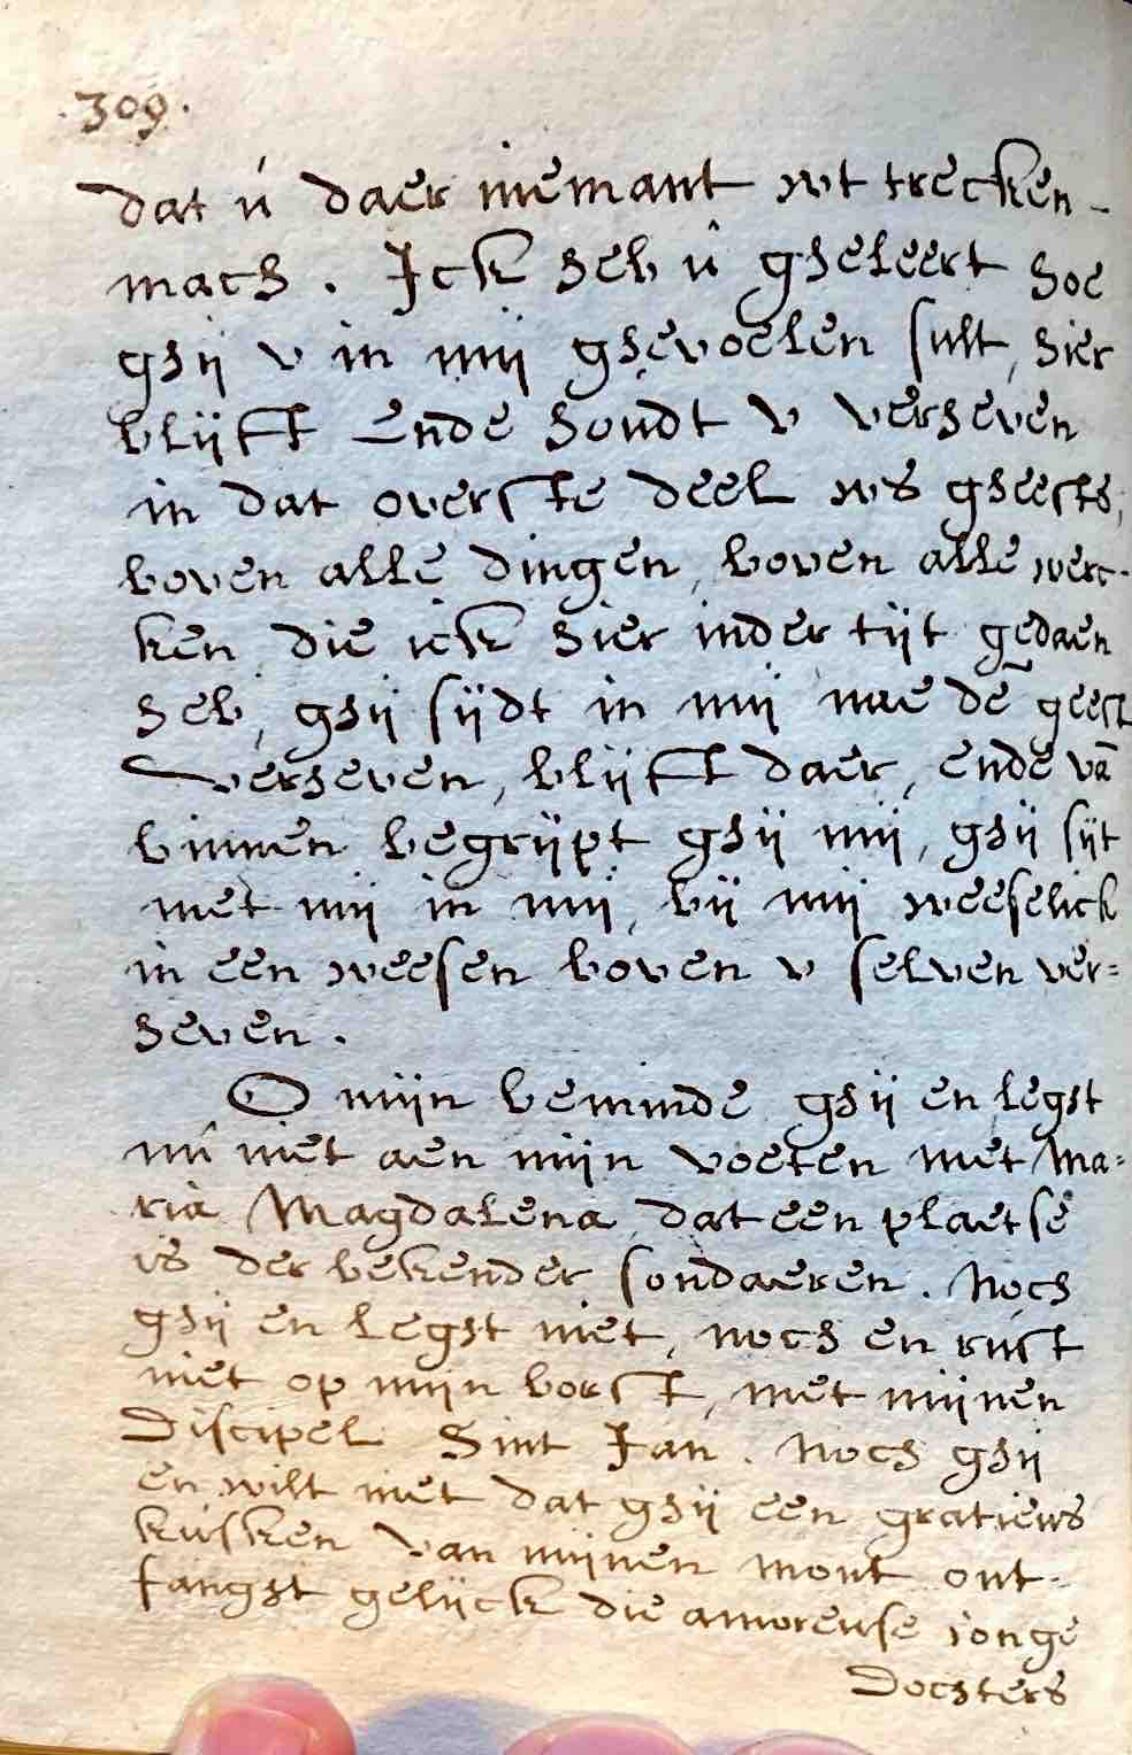 .309.
dat ú daer niemant wt trecken-
mach. Ick heb û gheleert hoe
ghij v in mij ghevoelen sult, hier
blijft ende houdt v verheven
in dat overste deel ws gheests,
boven alle dingen, boven alle werc-
ken die ick hier inder tijt gedaen
heb, ghij sijdt in mij nae dē geest
verheven, blijft daer, ende vā
binnen begrijpt ghij mij, ghij sijt
met mij in mij, bij mij weeselick
in een weesen boven v selven ver=
heven.
O mijn beminde ghij en legst
nû niet aen mijn voeten met Ma=
ria Magdalena dat een plaetse
is der bekender sondaeren. Noch
ghij en legst niet, noch en rust
niet op mijn borst, met mijnen
Discipel Sint Jan. Noch ghij
en wilt niet dat ghij een gratiews
kusken van mijnen mont ont-
fangst gelijck die amoreuse ionge
Dochters